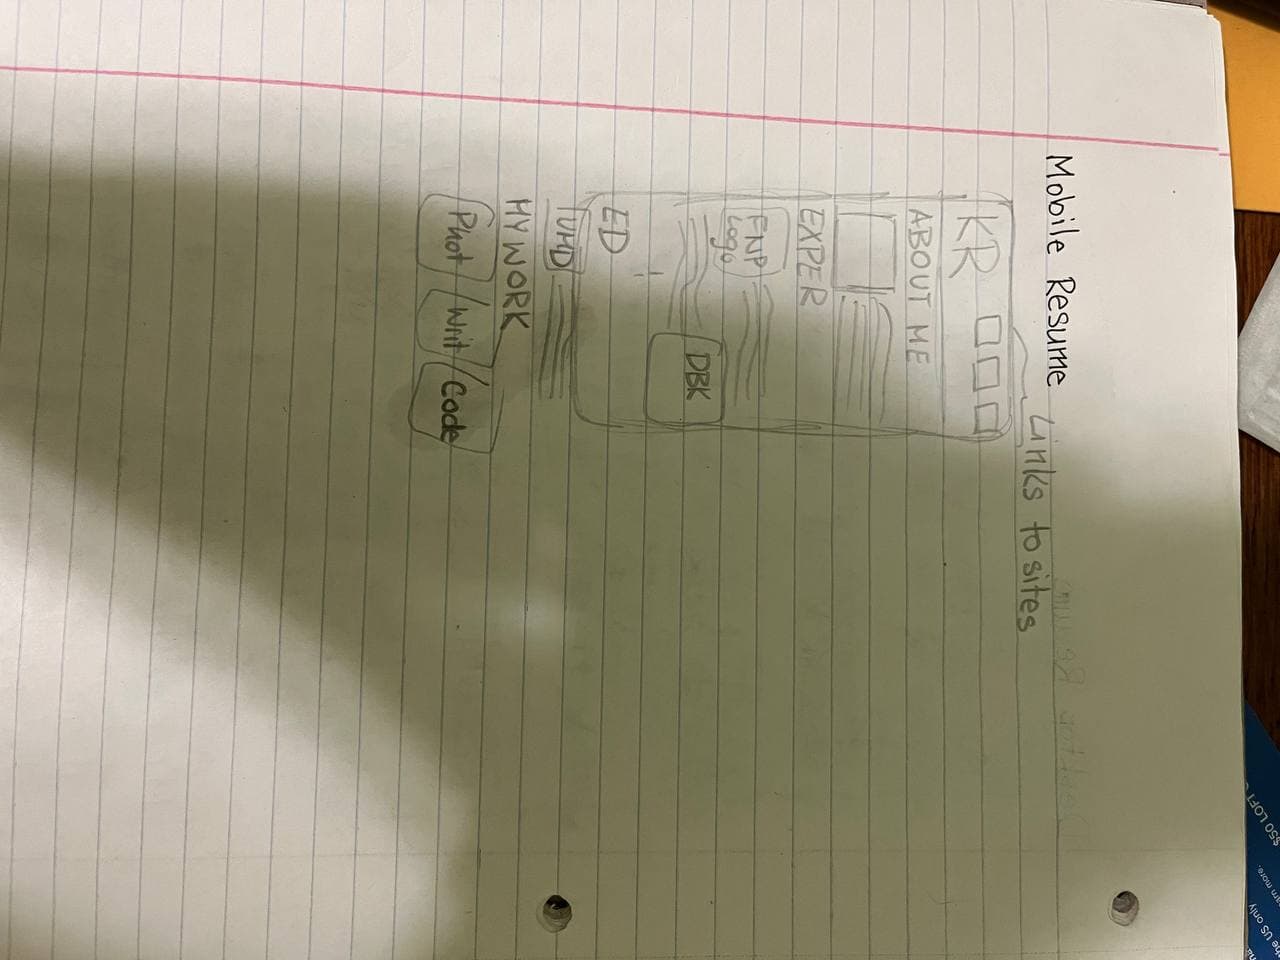 Mobile Resume
Links to sites
KR
ABOUT ME
EXPER
FNP
Logo
DBK
ED
UMD
MY WORK
Phot / Writ / Code
$50 LOFT
arn more.
he US only